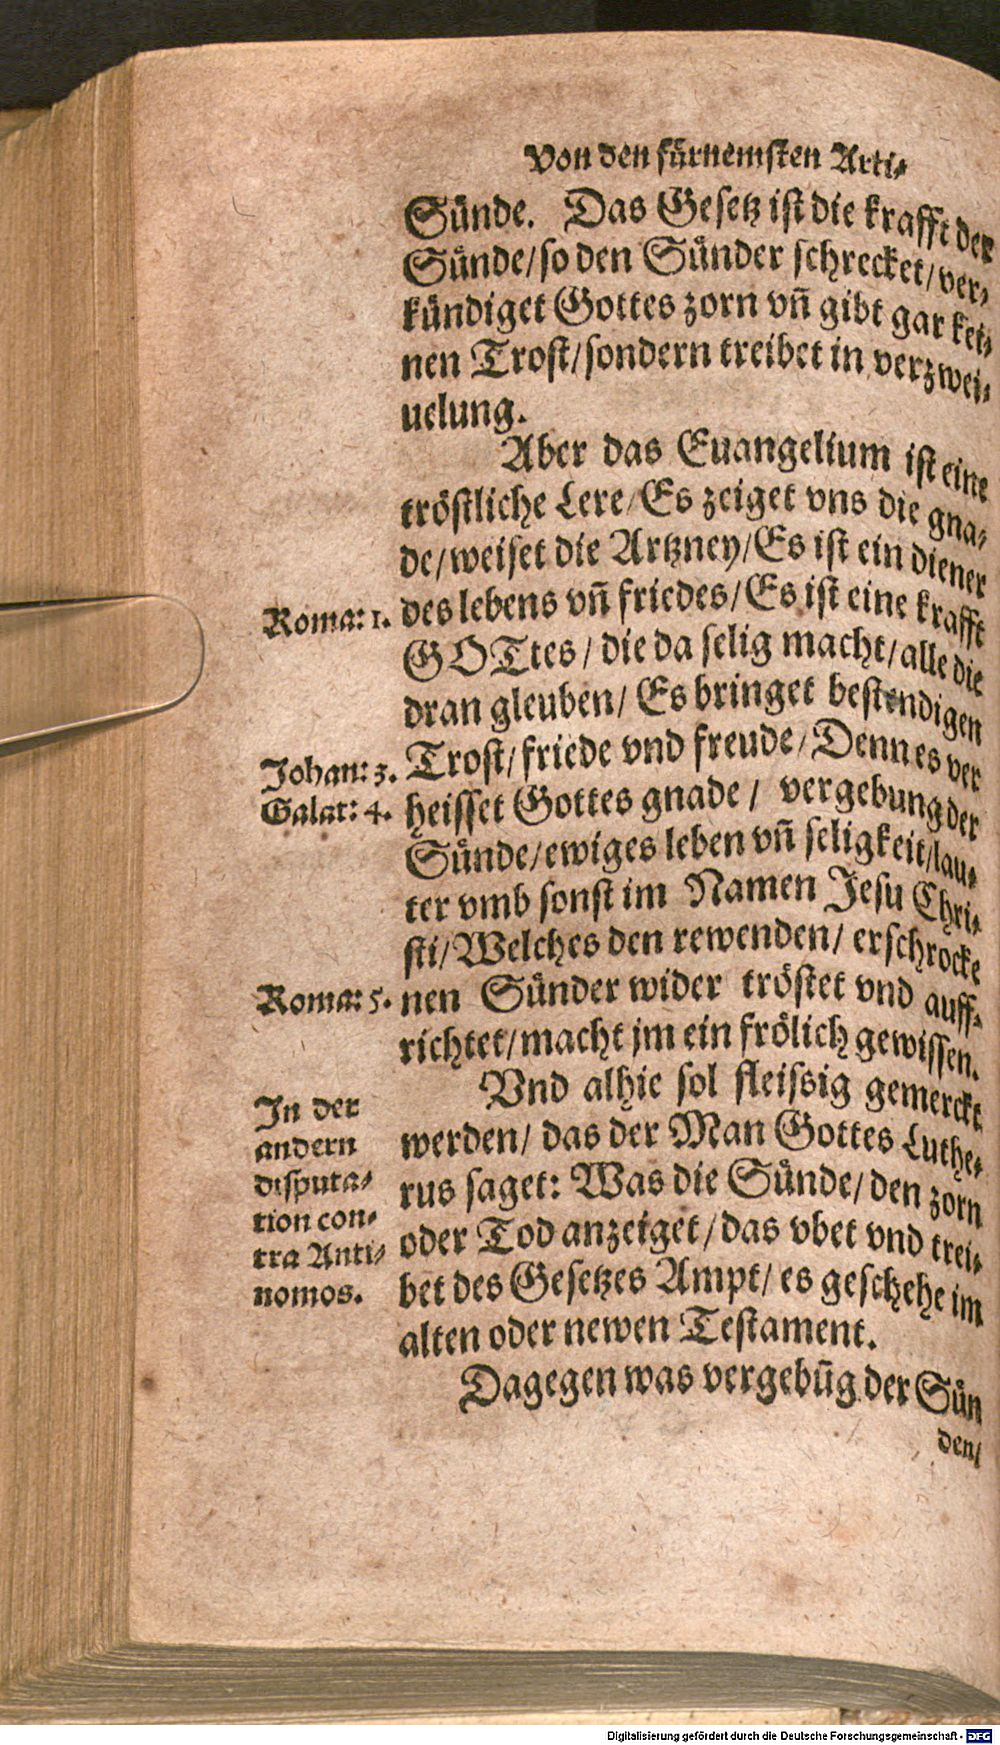 Von den fürnemsten Arti⸗
Sünde. Das Gesetz ist die krafft der
Sünde/so den Sünder schrecket/ver⸗
kündiget Gottes zorn vñ gibt gar kei⸗
nen Trost/sondern treibet in verzwei⸗
uelung.
Aber das Euangelium ist eine
tröstliche Lere/Es zeiget vns die gna⸗
de/weiset die Artzney/Es ist ein diener
Roma: 1.
des lebens vñ friedes/Es ist eine krafft
GOTtes/die da selig macht/alle die
dran gleuben/Es bringet bestendigen
Johan: 3.
Trost/friede vnd freude/Denn es ver
Galat: 4.
heisset Gottes gnade/vergebung der
Sünde/ewiges leben vñ seligkeit/lau⸗
ter vmb sonst im Namen Jesu Chri⸗
sti/Welches den rewenden/erschrocke
Roma: 5.
nen Sünder wider tröstet vnd auff⸗
richtet/macht jm ein frölich gewissen.
Vnd alhie sol fleissig gemerckt
In der
andern
disputa⸗
tion con⸗
tra Anti⸗
nomos.
werden/das der Man Gottes Luthe⸗
rus saget: Was die Sünde/den zorn
oder Tod anzeiget/das vbet vnd trei⸗
bet des Gesetzes Ampt/es geschehe im
alten oder newen Testament.
Dagegen was vergebũg der Sün
den/
Digitalisierung gefördert durch die Deutsche Forschungsgemeinschaft - DFG